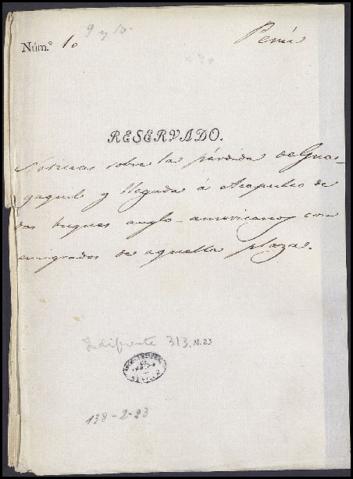 9 y 10.
Perú
Núm.º 10
RESERVADO.
Noticias sobre la pérdida de Gua-
yaquil y llegada á Acapulco de
dos buques anglo-americanos con
emigrados de aquella plaza.
Indiferente 313, N.23
138-2-23